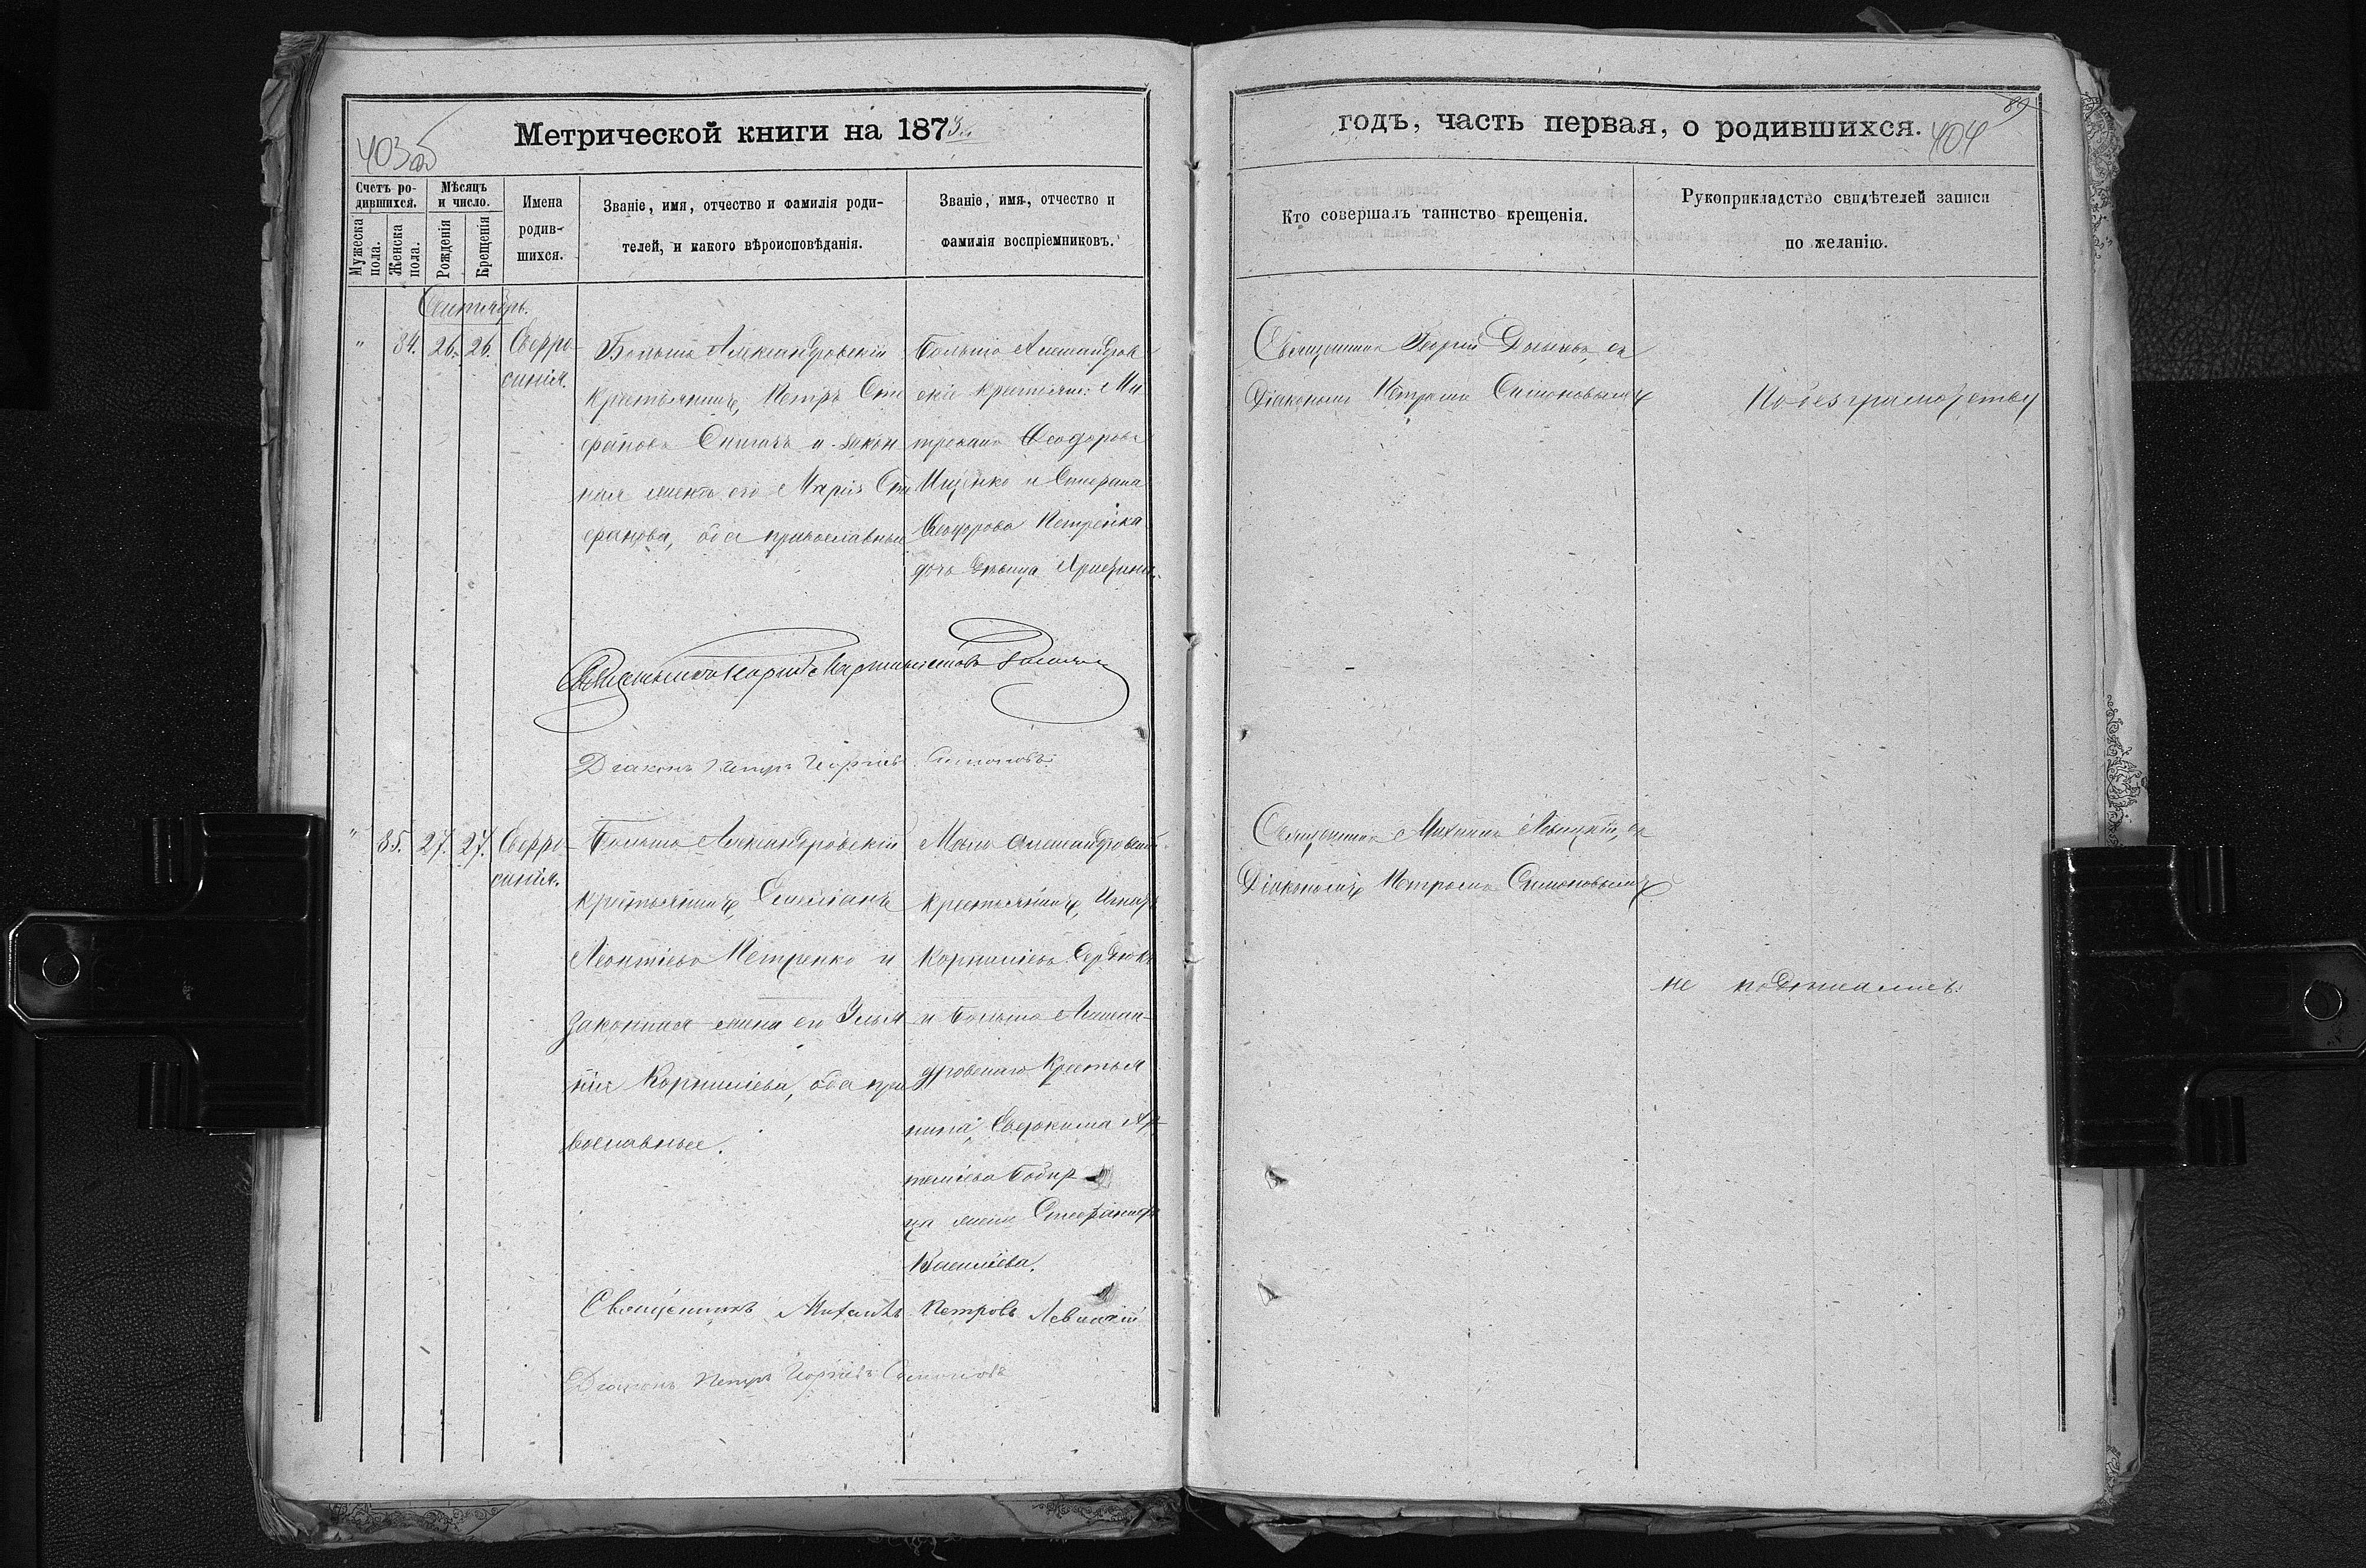 Метрической книги на 1873
403 об
годъ, часть первая, о родившихся.
404
89
Счетъ ро-
дившихся.
Мужеска
пола.
Женска
пола.
Мѣсяцъ
и число.
Рожденія
Крещенія
Имена
родив-
шихся.
Званіе, имя, отчество и фамилія роди-
телей, и какого вѣроисповѣданія.
Званіе, имя, отчество и
фамилія воспріемниковъ.
Кто совершалъ таинство крещенія.
Рукоприкладство свидѣтелей записи
по желанію.
Сентябрь.
" 84. 26. 26. Евфро-
синія.
Больше Александровскій
крестьянинъ, Петръ Сте
фановъ и закон
ная жена его Марія Сте
фанова, оба православные
Больше Александров
скіе крестьяне: Ми
трофанъ Ѳеодоровъ
Ищенко и Стефана
Ѳеодорова Петренка
дочь дѣвица Христина.
Священникъ Георгій съ
Діакономъ Петромъ Симоновымъ
По безграмотству
Священникъ Георгій
Діаконъ Петръ Георгіевъ Симоновъ
" 85. 27. 27. Евфро-
синія.
Больше Александровскій
крестьянинъ, Симеонъ
Леонтіевъ Петренко и
законная жена его Улья
нія Корниліева, оба пра
вославные.
Мало Александровскій
крестьянинъ, Игнатъ
Корниліевъ Сердюкъ
и Больше Алексан-
дровскаго крестья
нина, Евфима Ар
теміева
жена Стефанида
Василіева.
Священникъ Михаилъ Левицкій, съ
Діакономъ Петромъ Симоновымъ
не подписались.
Священникъ Михаилъ Петровъ Левицкій
Діаконъ Петръ Георгіевъ Симоновъ